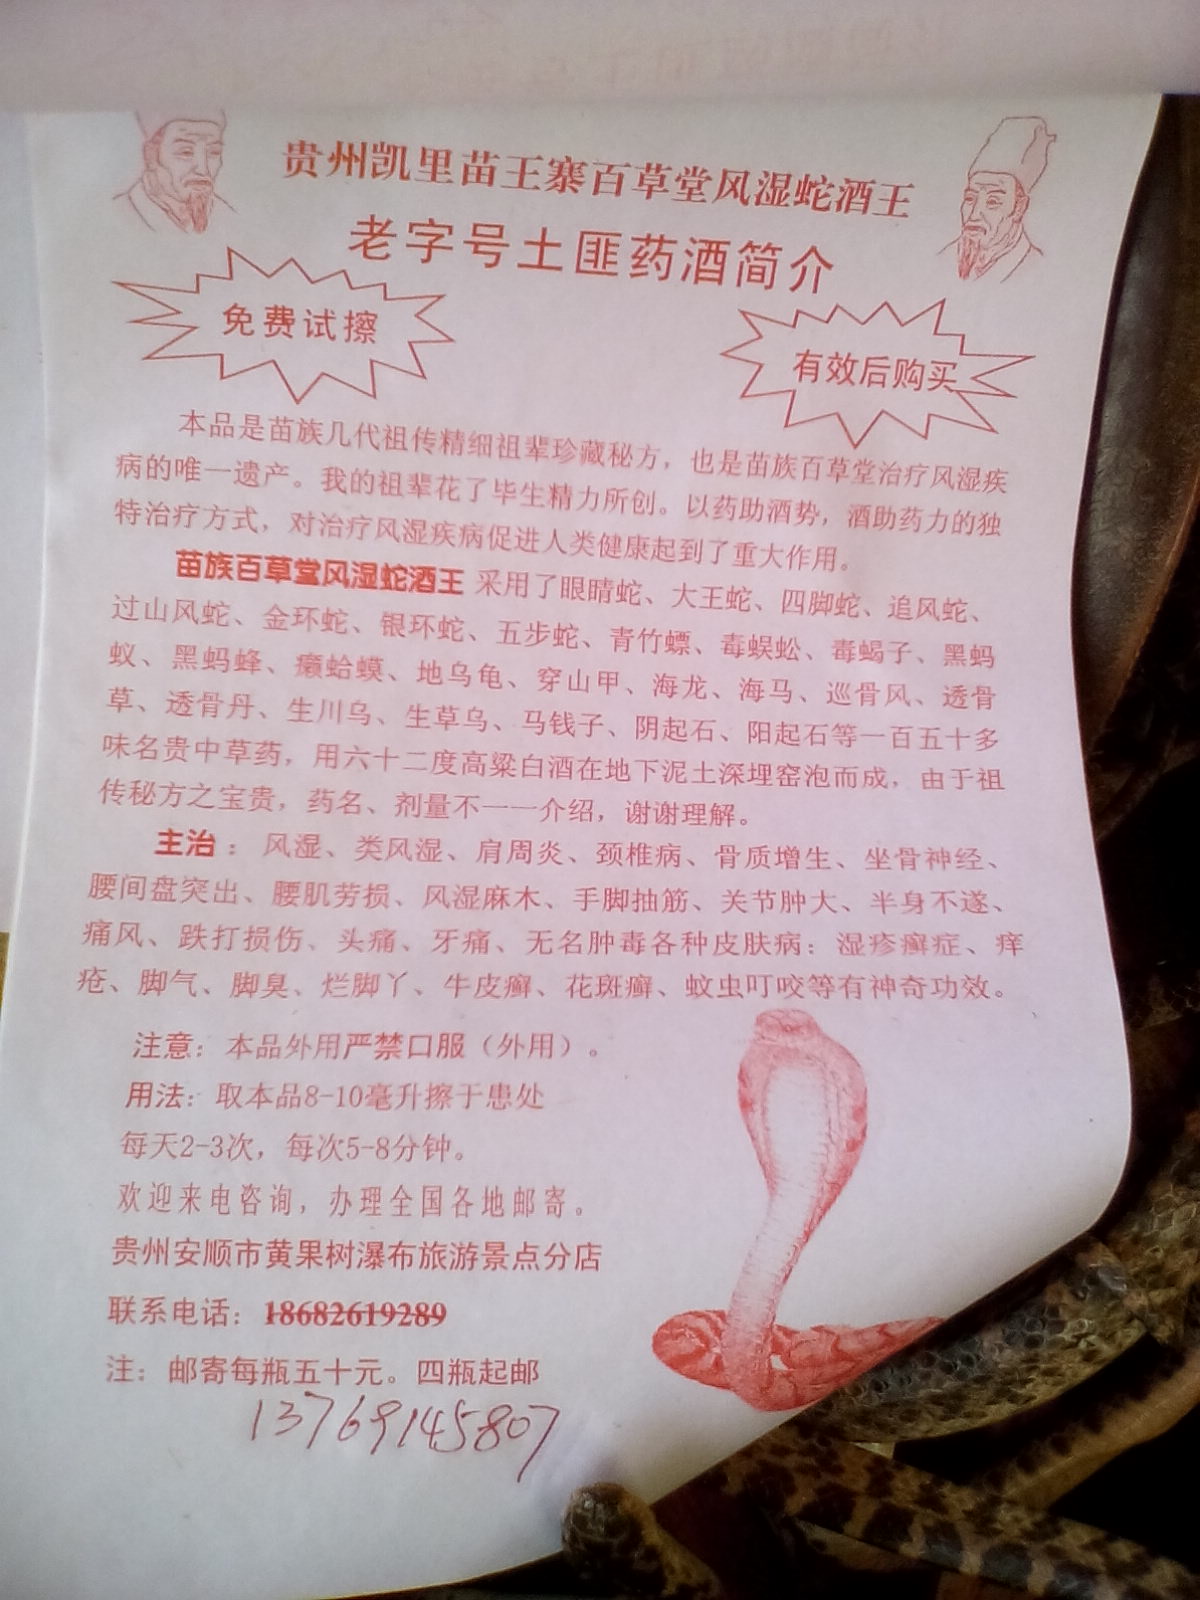 贵州凯里苗王寨百草堂风湿蛇酒王
老字号土匪药酒简介
免费试擦
有效后购买
本品是苗族几代祖传精细祖辈珍藏秘方，也是苗族百草堂治疗风湿疾
病的唯一遗产。我的祖辈花了毕生精力所创。以药助酒势，酒助药力的独
特治疗方式，对治疗风湿疾病促进人类健康起到了重大作用。
苗族百草堂风湿蛇酒王 采用了眼睛蛇、大王蛇、四脚蛇、追风蛇、
过山风蛇、金环蛇、银环蛇、五步蛇、青竹螵、毒蜈蚣、毒蝎子、黑蚂
蚁、黑蚂蜂、癞蛤蟆、地乌龟、穿山甲、海龙、海马、巡骨风、透骨
草、透骨丹、生川乌、生草乌、马钱子、阴起石、阳起石等一百五十多
味名贵中草药，用六十二度高粱白酒在地下泥土深埋窑泡而成，由于祖
传秘方之宝贵，药名、剂量不一一介绍，谢谢理解。
主治：风湿、类风湿、肩周炎、颈椎病、骨质增生、坐骨神经、
腰间盘突出、腰肌劳损、风湿麻木、手脚抽筋、关节肿大、半身不遂、
痛风、跌打损伤、头痛、牙痛、无名肿毒各种皮肤病：湿疹癣症、痒
疮、脚气、脚臭、烂脚丫、牛皮癣、花斑癣、蚊虫叮咬等有神奇功效。
注意：本品外用严禁口服（外用）。
用法：取本品8-10毫升擦于患处
每天2-3次，每次5-8分钟。
欢迎来电咨询，办理全国各地邮寄。
贵州安顺市黄果树瀑布旅游景点分店
联系电话：18682619289
注：邮寄每瓶五十元。四瓶起邮
13769145807